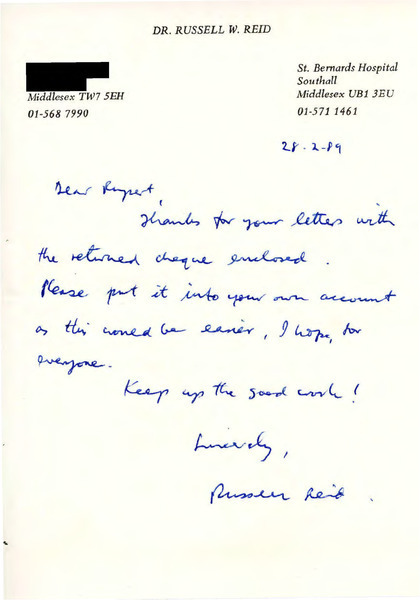 DR. RUSSELL W. REID
Middlesex TW7 5EH
01-568 7990
St. Bernards Hospital
Southall
Middlesex UB1 3EU
01-571 1461
28-2-89
Dear Rupert,
Thanks for your letters with
the returned cheque enclosed.
Please put it into your own account
as this would be easier, I hope, for
everyone.
Keep up the good work!
Sincerely,
Russell Reid.